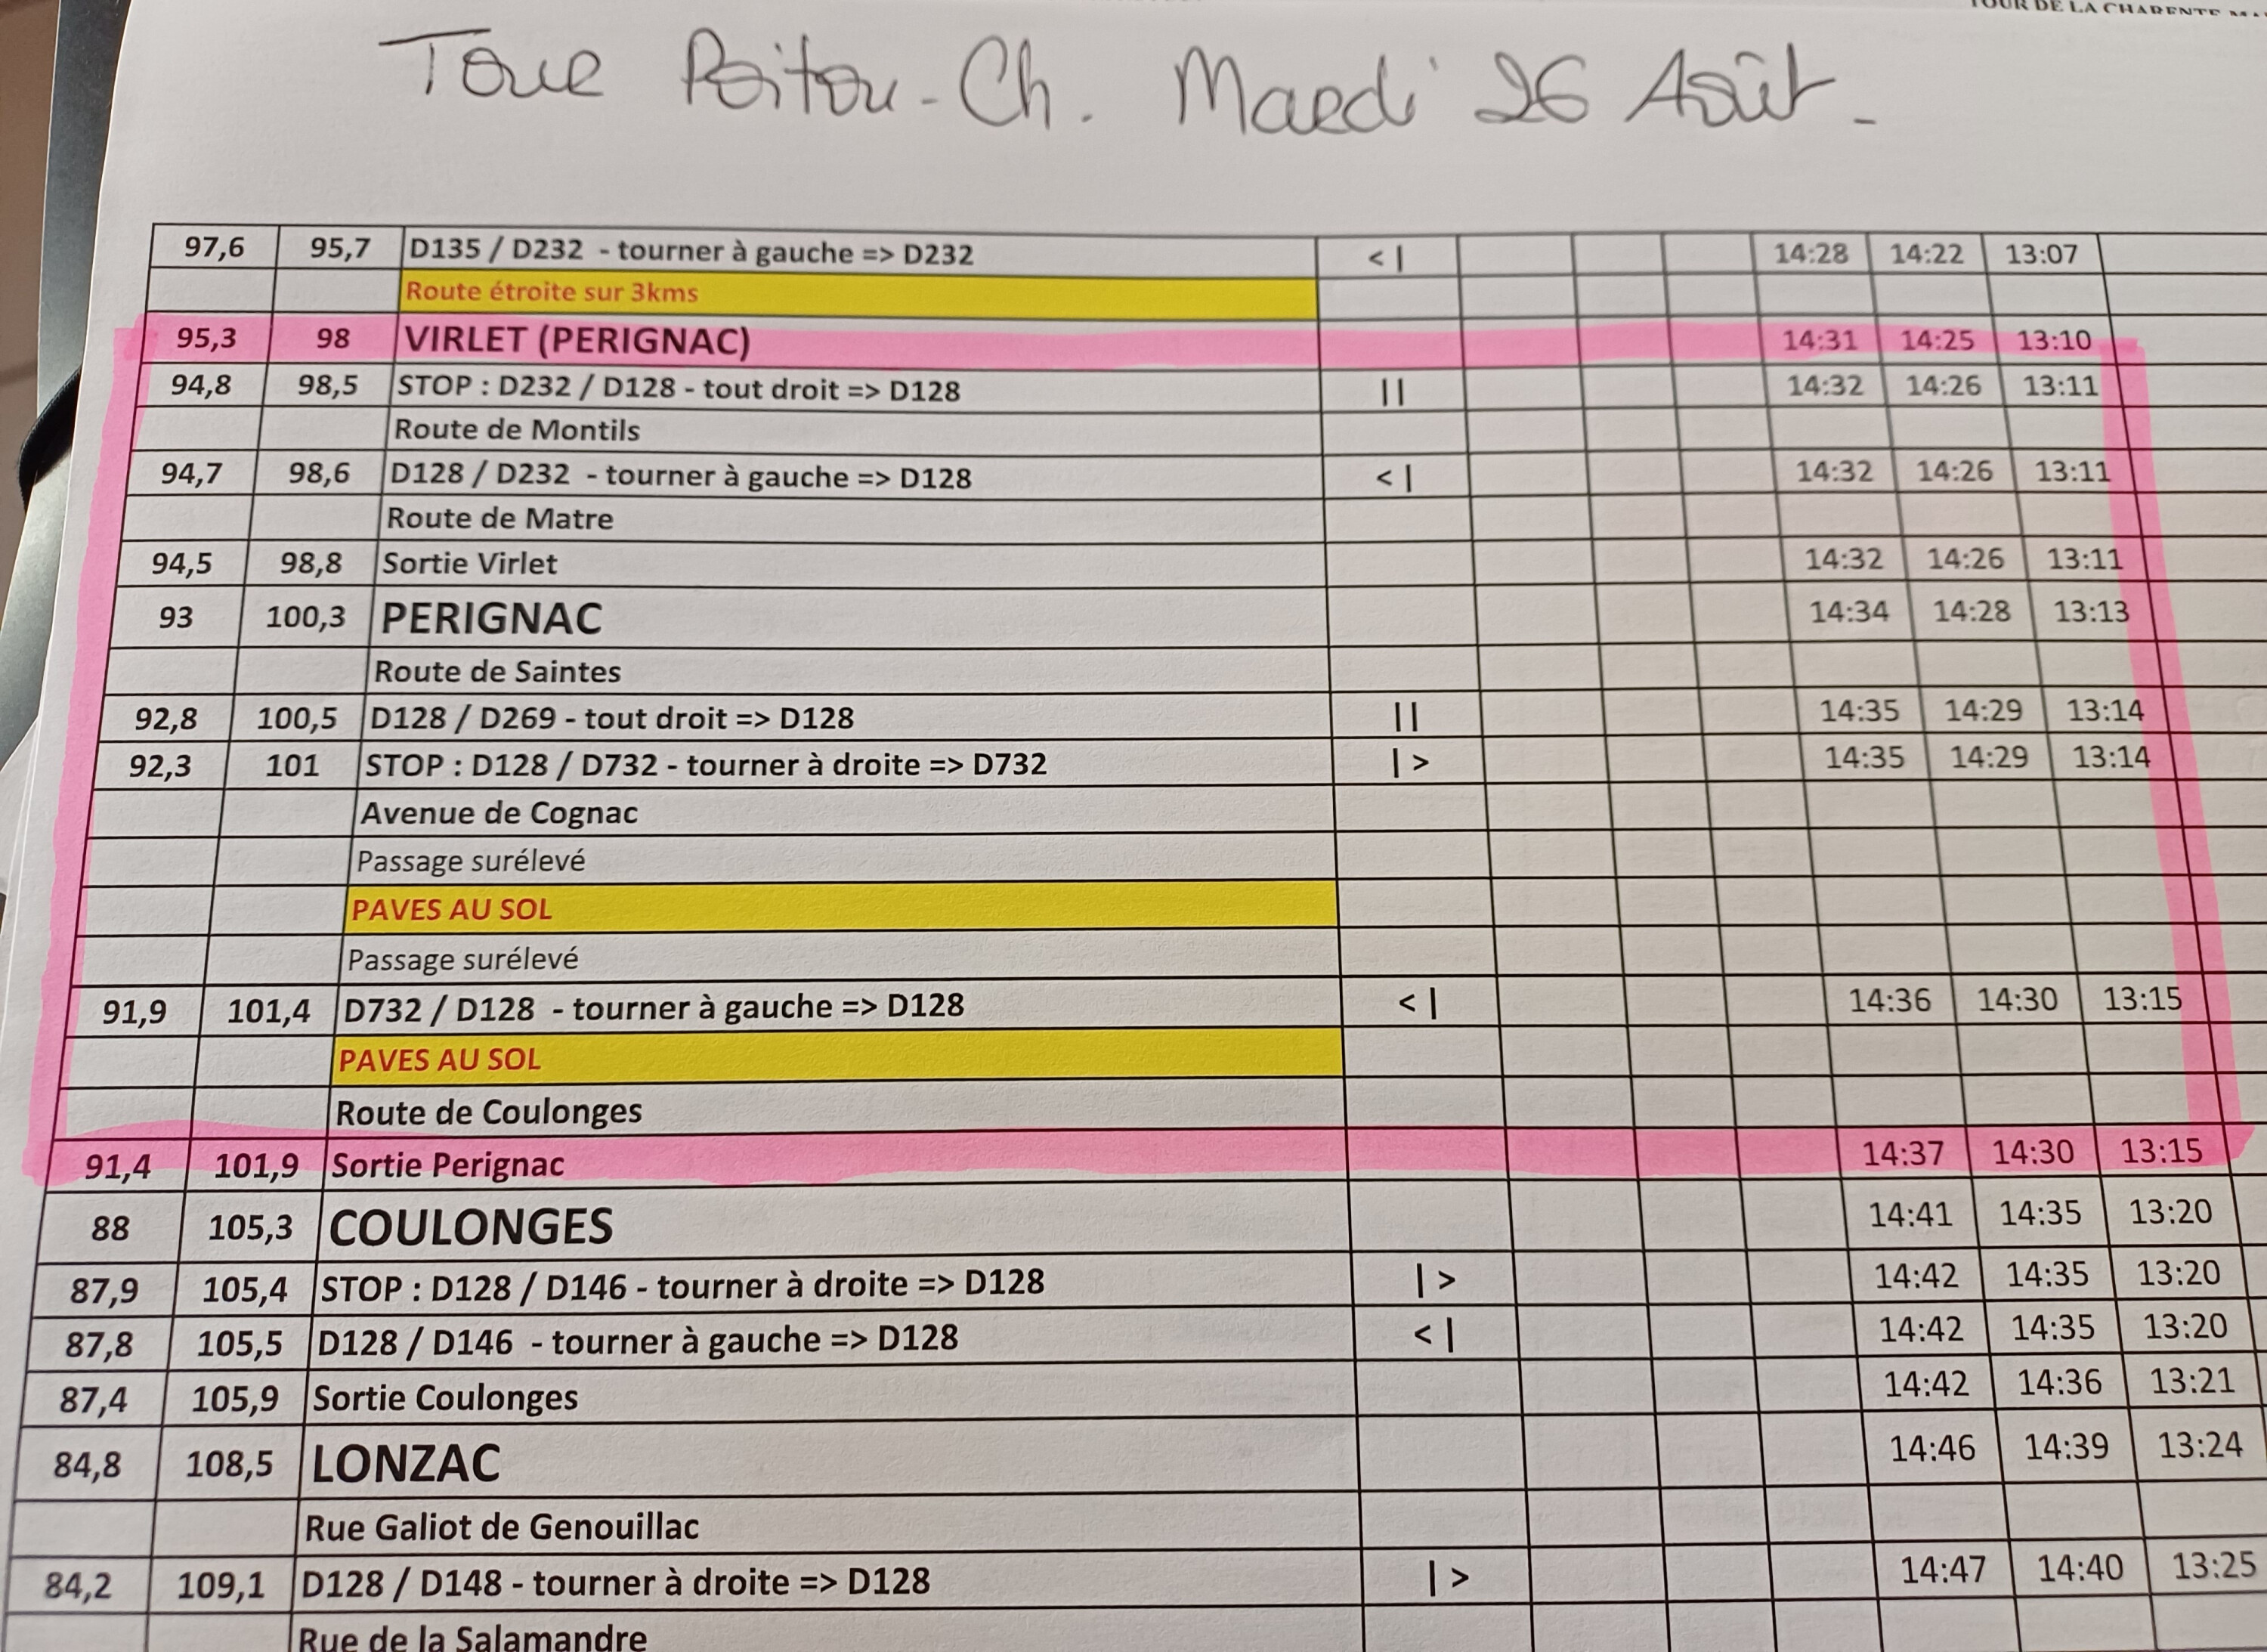 TOUR DE LA CHARENTE
Tour Poitou-Ch. Mardi 26 Août.
97,6 95,7 D135 / D232 - tourner à gauche => D232 < | 14:28 14:22 13:07
Route étroite sur 3kms
95,3 98 VIRLET (PERIGNAC) 14:31 14:25 13:10
94,8 98,5 STOP : D232 / D128 - tout droit => D128 | | 14:32 14:26 13:11
Route de Montils
94,7 98,6 D128 / D232 - tourner à gauche => D128 < | 14:32 14:26 13:11
Route de Matre
94,5 98,8 Sortie Virlet 14:32 14:26 13:11
93 100,3 PERIGNAC 14:34 14:28 13:13
Route de Saintes
92,8 100,5 D128 / D269 - tout droit => D128 | | 14:35 14:29 13:14
92,3 101 STOP : D128 / D732 - tourner à droite => D732 | > 14:35 14:29 13:14
Avenue de Cognac
Passage surélevé
PAVES AU SOL
Passage surélevé
91,9 101,4 D732 / D128 - tourner à gauche => D128 < | 14:36 14:30 13:15
PAVES AU SOL
Route de Coulonges
91,4 101,9 Sortie Perignac 14:37 14:30 13:15
88 105,3 COULONGES 14:41 14:35 13:20
87,9 105,4 STOP : D128 / D146 - tourner à droite => D128 | > 14:42 14:35 13:20
87,8 105,5 D128 / D146 - tourner à gauche => D128 < | 14:42 14:35 13:20
87,4 105,9 Sortie Coulonges 14:42 14:36 13:21
84,8 108,5 LONZAC 14:46 14:39 13:24
Rue Galiot de Genouillac
84,2 109,1 D128 / D148 - tourner à droite => D128 | > 14:47 14:40 13:25
Rue de la Salamandre